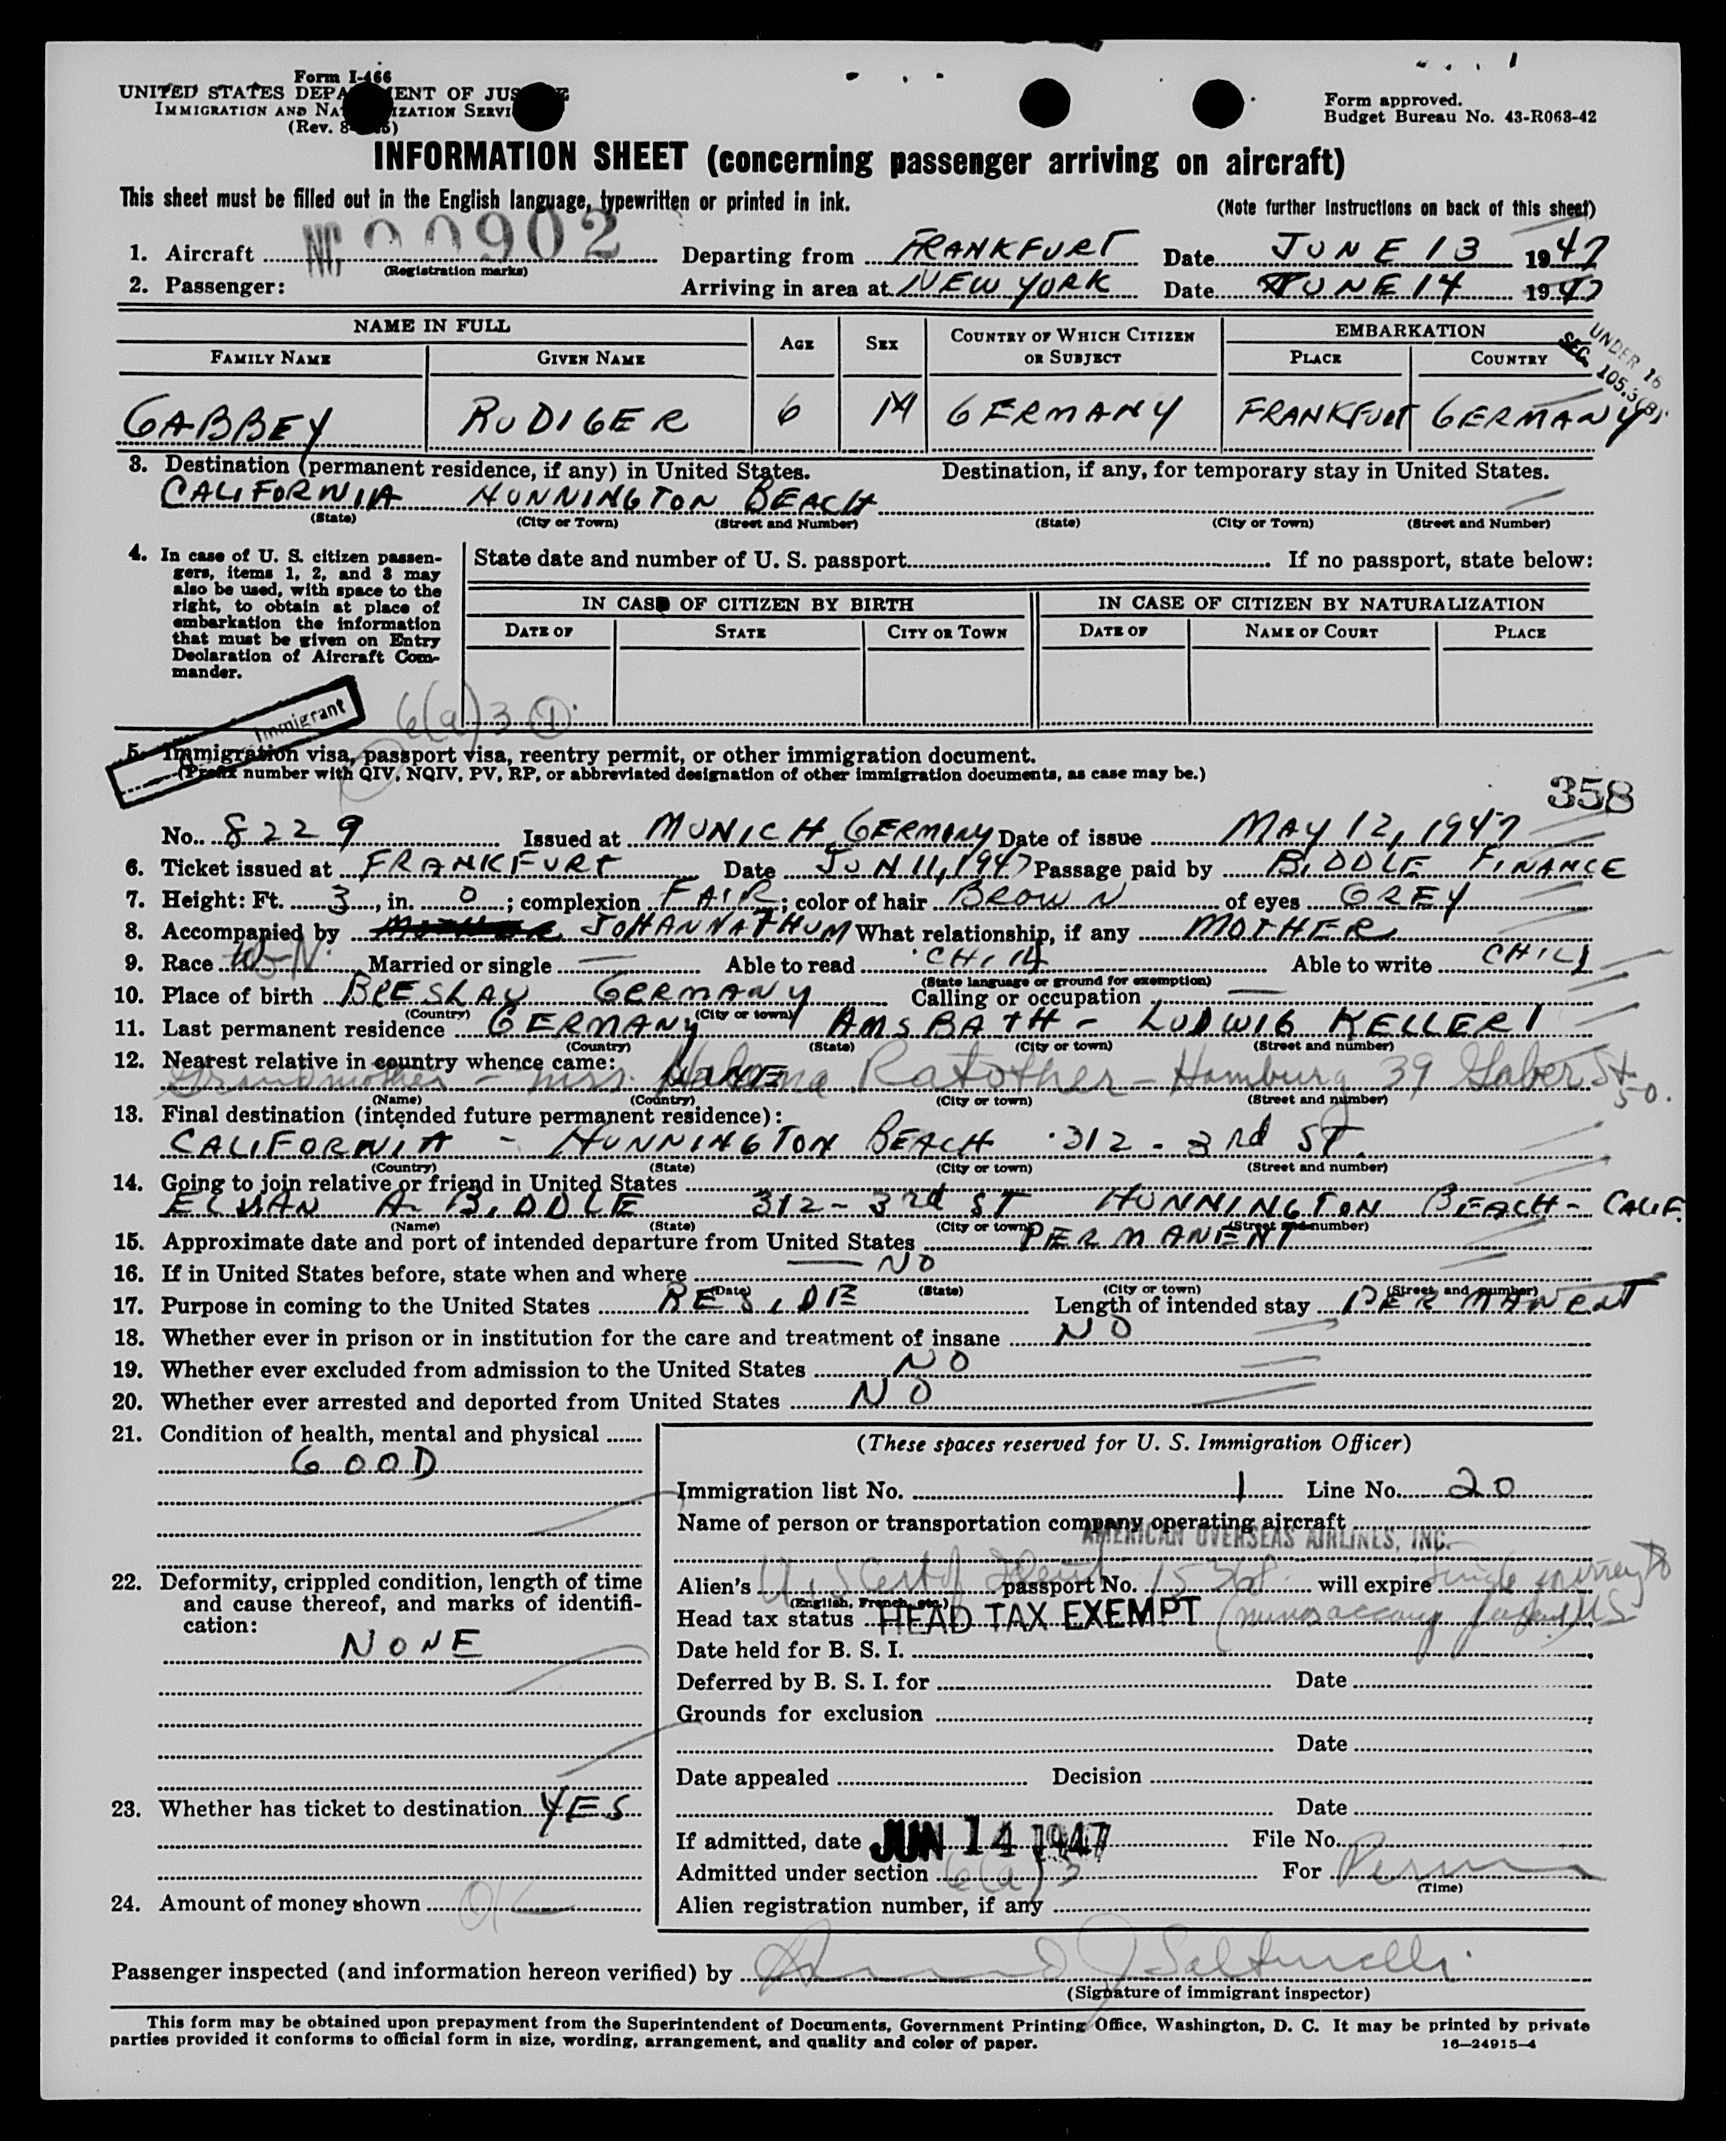 Form I-466
UNITED STATES DEPA ENT OF JUS
IMMIGRATION AND NA IZATION SERVI
(Rev. 8-
Form approved.
Budget Bureau No. 43-R063-42
INFORMATION SHEET (concerning passenger arriving on aircraft)
This sheet must be filled out in the English language, typewritten or printed in ink. (Note further instructions on back of this sheet)
1. Aircraft NC 90902 Departing from FRANKFURT Date JUNE 13 1947
(Registration marks)
2. Passenger: Arriving in area at NEW YORK Date JUNE 14 1947
NAME IN FULL AGE SEX COUNTRY OF WHICH CITIZEN OR SUBJECT EMBARKATION
FAMILY NAME GIVEN NAME PLACE COUNTRY
UNDER 16
SEC. 105.3(B)
GABBEY RUDIGER 6 M GERMANY FRANKFURT GERMANY
3. Destination (permanent residence, if any) in United States. Destination, if any, for temporary stay in United States.
CALIFORNIA HUNNINGTON BEACH
(State) (City or Town) (Street and Number) (State) (City or Town) (Street and Number)
4. In case of U. S. citizen passengers, items 1, 2, and 3 may also be used, with space to the right, to obtain at place of embarkation the information that must be given on Entry Declaration of Aircraft Commander.
State date and number of U. S. passport If no passport, state below:
IN CASE OF CITIZEN BY BIRTH IN CASE OF CITIZEN BY NATURALIZATION
DATE OF STATE CITY OR TOWN DATE OF NAME OF COURT PLACE
Immigrant
6(a)3 1
5. Immigration visa, passport visa, reentry permit, or other immigration document.
(Prefix number with QIV, NQIV, PV, RP, or abbreviated designation of other immigration documents, as case may be.)
358
No. 8229 Issued at MUNICH, GERMANY Date of issue MAY 12, 1947
6. Ticket issued at FRANKFURT Date JUN 11, 1947 Passage paid by BIDDLE FINANCE
7. Height: Ft. 3, in. 0; complexion FAIR; color of hair BROWN of eyes GREY
8. Accompanied by JOHANNA THUM What relationship, if any MOTHER
9. Race Married or single — Able to read CHILD Able to write CHILD
(State language or ground for exemption)
10. Place of birth BRESLAU GERMANY Calling or occupation —
(Country) (City or town)
11. Last permanent residence GERMANY AMSBATH - LUDWIG KELLER 1
(Country) (State) (City or town) (Street and number)
12. Nearest relative in country whence came:
Grandmother - Mrs. NONE - Hamburg 39
(Name) (Country) (City or town) (Street and number)
13. Final destination (intended future permanent residence):
CALIFORNIA - HUNNINGTON BEACH 312 - 3rd ST.
(Country) (State) (City or town) (Street and number)
14. Going to join relative or friend in United States
A. BIDDLE 312 - 3rd ST HUNNINGTON BEACH - CALIF.
(Name) (State) (City or town) (Street and number)
15. Approximate date and port of intended departure from United States PERMANENT
16. If in United States before, state when and where — NO
(Date) (State) (City or town) (Street and number)
17. Purpose in coming to the United States RESIDE Length of intended stay PERMANENT
18. Whether ever in prison or in institution for the care and treatment of insane NO
19. Whether ever excluded from admission to the United States NO
20. Whether ever arrested and deported from United States NO
21. Condition of health, mental and physical
GOOD
22. Deformity, crippled condition, length of time and cause thereof, and marks of identification:
NONE
23. Whether has ticket to destination YES
24. Amount of money shown OK
(These spaces reserved for U. S. Immigration Officer)
Immigration list No. 1 Line No. 20
Name of person or transportation company operating aircraft
AMERICAN OVERSEAS AIRLINES, INC.
Alien's U.S. Cert of Ident passport No. will expire Single journey to
(English, French, etc.)
Head tax status HEAD TAX EXEMPT U S
Date held for B. S. I.
Deferred by B. S. I. for Date
Grounds for exclusion
Date
Date appealed Decision
Date
If admitted, date JUN 14 1947 File No.
Admitted under section 6(a)3 For Perm
(Time)
Alien registration number, if any
Passenger inspected (and information hereon verified) by
(Signature of immigrant inspector)
This form may be obtained upon prepayment from the Superintendent of Documents, Government Printing Office, Washington, D. C. It may be printed by private
parties provided it conforms to official form in size, wording, arrangement, and quality and color of paper. 16—24915-4